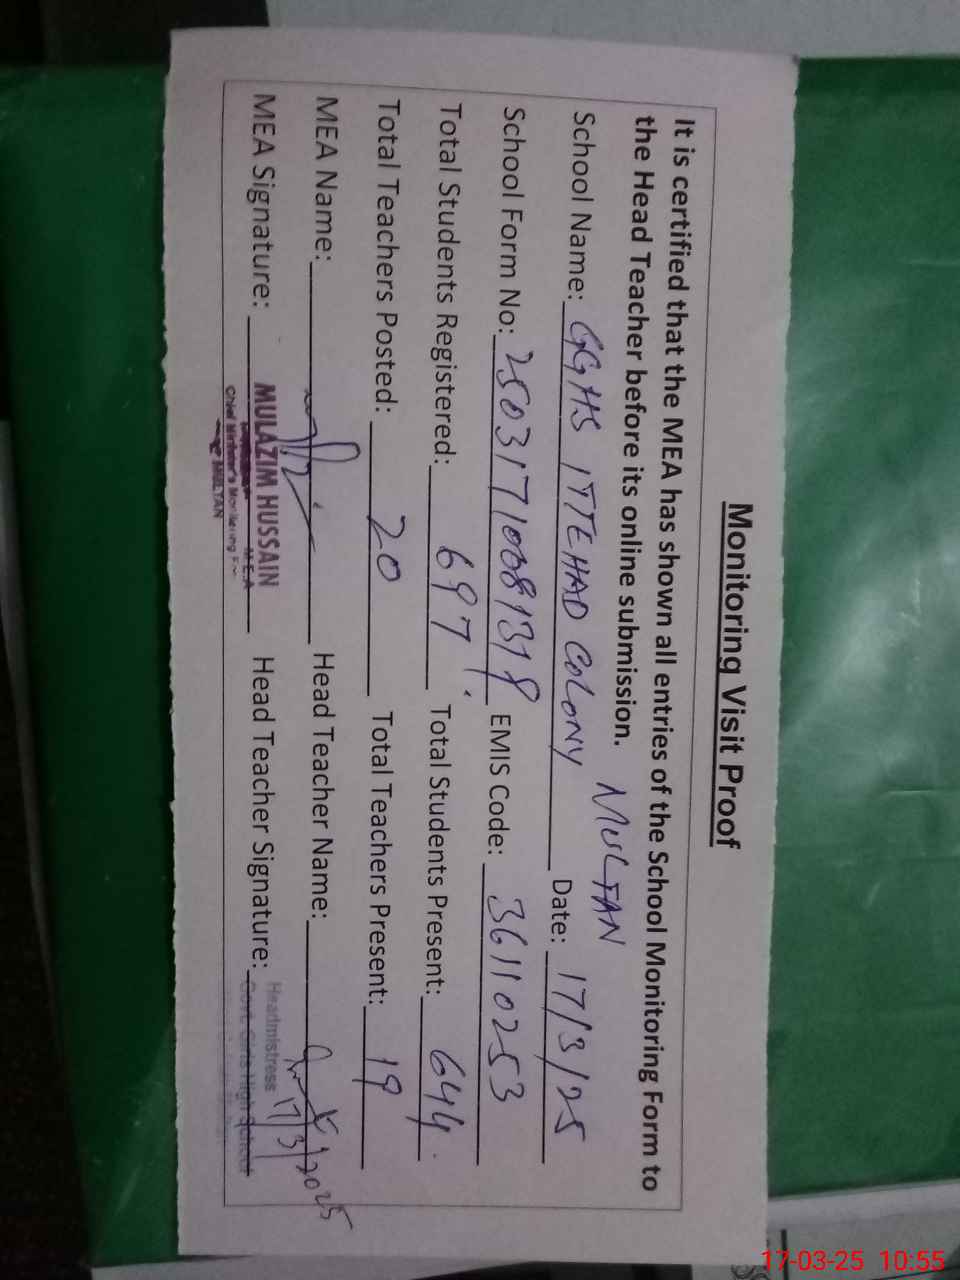 Monitoring Visit Proof
It is certified that the MEA has shown all entries of the School Monitoring Form to
the Head Teacher before its online submission.
MULTAN
School Name: GGHS ITTEHAD COLONY Date: 17/3/25
School Form No: EMIS Code: 36110253
Total Students Registered: 697 Total Students Present: 644
Total Teachers Posted: 20 Total Teachers Present: 19
MEA Name: Head Teacher Name:
17/3/2025
MEA Signature: MULAZIM HUSSAIN Head Teacher Signature: Headmistress
M.E.A Govt. Girls High School
Chief Minister's Monitoring
MULTAN
17-03-25 10:55